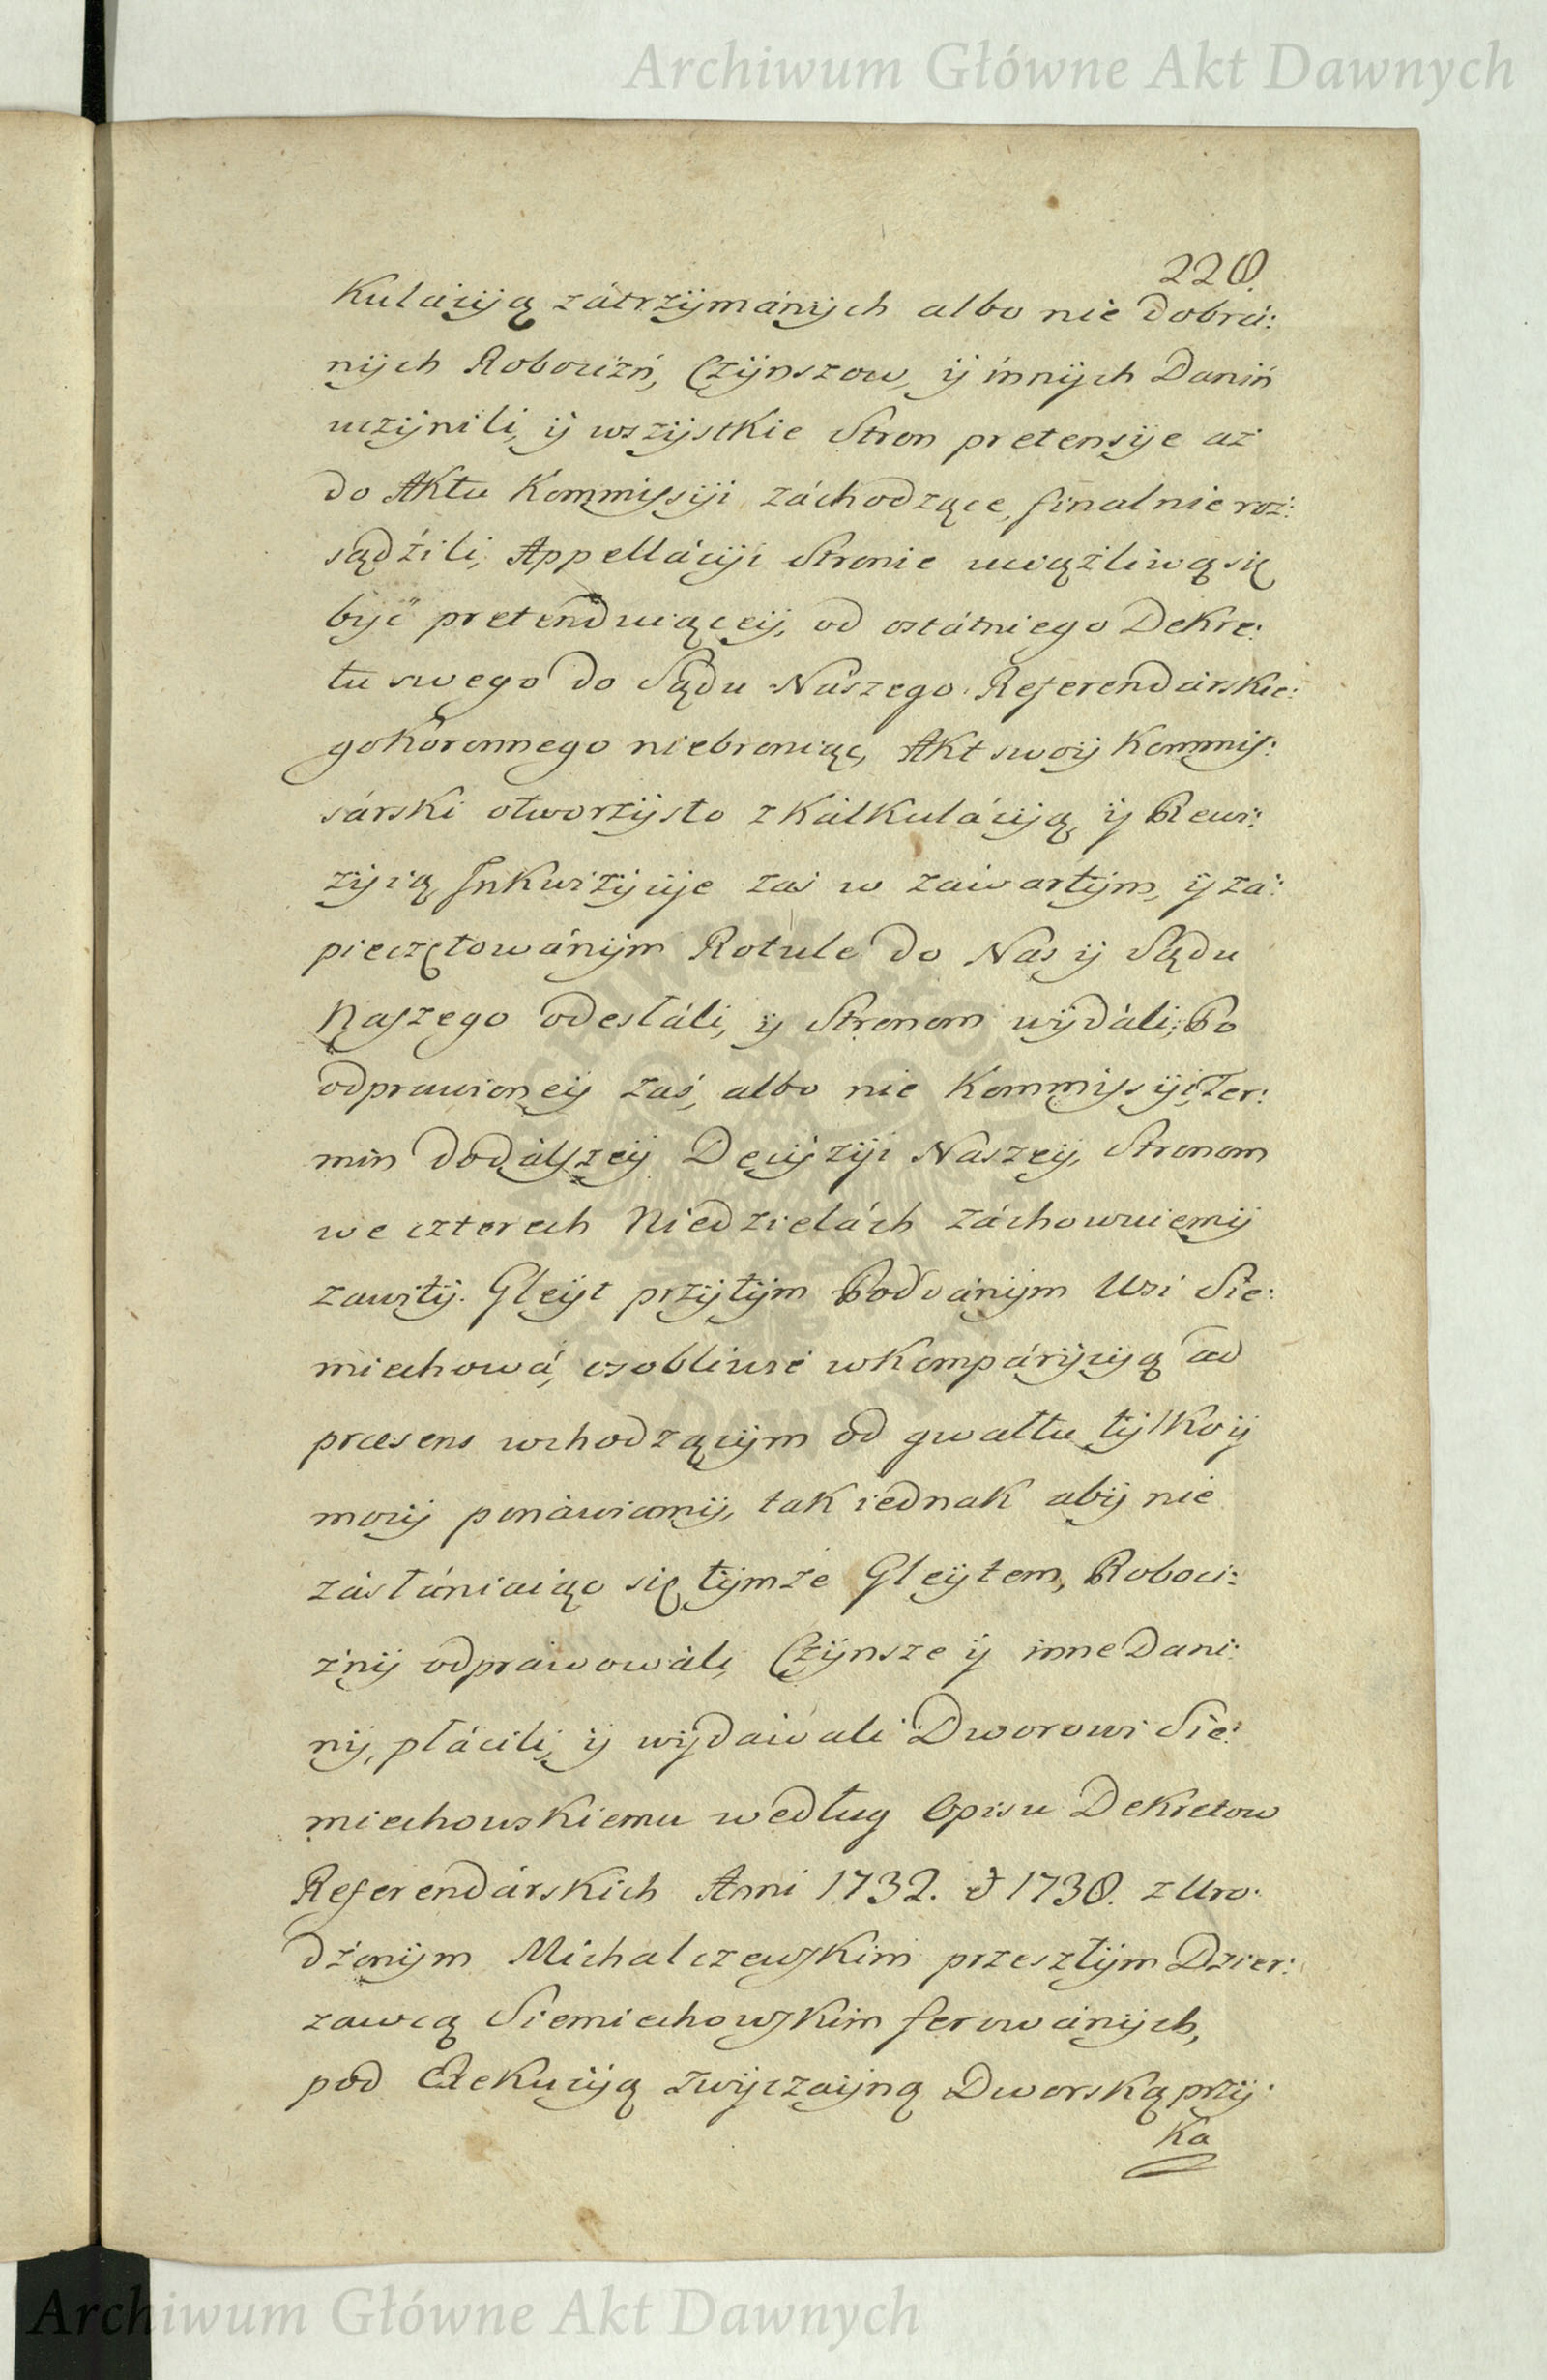 Archiwum Główne Akt Dawnych
228.
Kulácyią zátrzÿmánÿch albo nie dobrá:
nÿch Robocizń, Czÿnszow, ÿ innÿch Daniń
uczÿnili, ÿ wszÿstkie Stron pretensÿe aż
do Aktu Kommissÿi záchodzące, finalnie roz:
sądźili, Appellácÿi Stronie uciążliwą się
bÿć pretenduiąceÿ, od ostátniego Dekre:
tu swego do Sądu Nászego Referendárskie:
go Koronnego niebroniąc, Akt swoÿ Kommis:
sárski otworzÿsto z Kálkulácÿią, ÿ Rewi:
zÿią Inkwizÿcÿe zas w zawartÿm, ÿ za:
pieczętowánÿm Rotule do Nas ÿ Sądu
Naszego odesłáli, ÿ Stronom wÿdáli; Po
odprawioneÿ zaś, albo nie Kommissÿi, Ter:
min do dálszeÿ Decÿzÿi Naszeÿ, Stronom
we czterech Niedzielách záchowuiemÿ
zawitÿ. Gleÿt przÿtÿm Poddánÿm Wsi Sie:
miechowá, osobliwie w Kompárÿcÿą ad
præsens wchodzącÿm od gwałtu tÿlko ÿ
mocÿ ponáwiamÿ, tak iednak abÿ nie
zásłániaiąc się tÿmże Gleÿtem, Roboci:
znÿ odprawowáli, Czÿnsze ÿ inne Dani:
nÿ, płácili, ÿ wÿdawali Dworowi Sie:
miechowskiemu według Opisu Dekretow
Referendárskich Anni 1732. et 1738. z Uro:
dzonÿm Michalczewskim przeszłÿm Dzier:
zawcą Siemiechowskim ferowánÿch,
pod Exekucÿą zwÿczaÿną Dworską przÿ:
Ka
Archiwum Główne Akt Dawnych